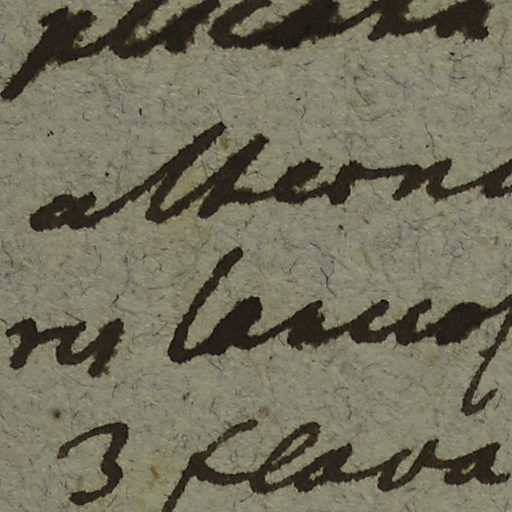 plicata
altern
rus lanceo
3 flava